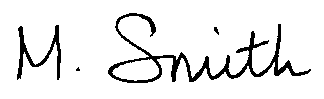 M. Smith